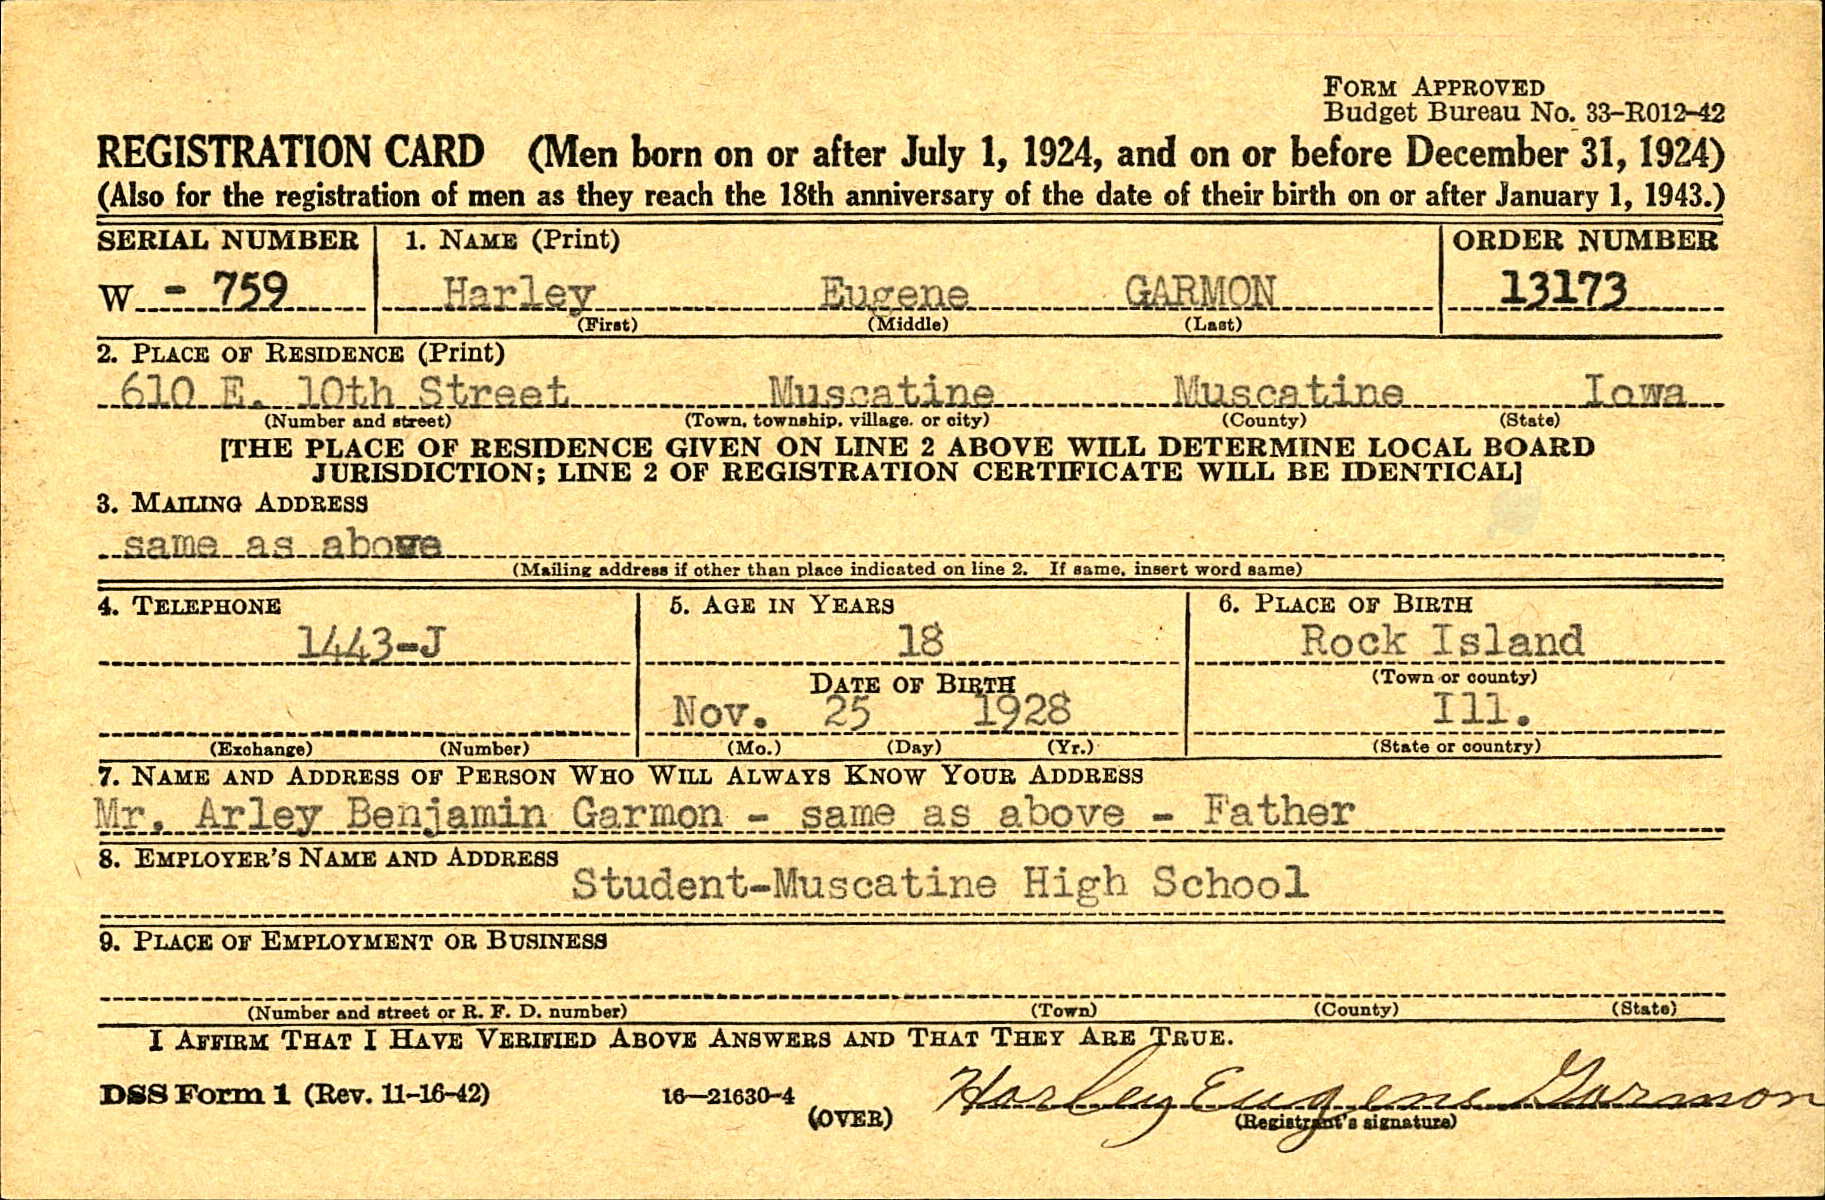 FORM APPROVED
Budget Bureau No. 33-R012-42
REGISTRATION CARD (Men born on or after July 1, 1924, and on or before December 31, 1924)
(Also for the registration of men as they reach the 18th anniversary of the date of their birth on or after January 1, 1943.)
SERIAL NUMBER 1. NAME (Print) ORDER NUMBER
W - 759 Harley Eugene GARMON 13173
(First) (Middle) (Last)
2. PLACE OF RESIDENCE (Print)
610 E. 10th Street Muscatine Muscatine Iowa
(Number and street) (Town, township, village, or city) (County) (State)
[THE PLACE OF RESIDENCE GIVEN ON LINE 2 ABOVE WILL DETERMINE LOCAL BOARD
JURISDICTION; LINE 2 OF REGISTRATION CERTIFICATE WILL BE IDENTICAL]
3. MAILING ADDRESS
same as above
(Mailing address if other than place indicated on line 2. If same, insert word same)
4. TELEPHONE 5. AGE IN YEARS 6. PLACE OF BIRTH
1443-J 18 Rock Island
(Town or county)
DATE OF BIRTH
Nov. 25 1928 Ill.
(Exchange) (Number) (Mo.) (Day) (Yr.) (State or country)
7. NAME AND ADDRESS OF PERSON WHO WILL ALWAYS KNOW YOUR ADDRESS
Mr. Arley Benjamin Garmon - same as above - Father
8. EMPLOYER'S NAME AND ADDRESS
Student-Muscatine High School
9. PLACE OF EMPLOYMENT OR BUSINESS
(Number and street or R. F. D. number) (Town) (County) (State)
I AFFIRM THAT I HAVE VERIFIED ABOVE ANSWERS AND THAT THEY ARE TRUE.
DSS Form 1 (Rev. 11-16-42) 16—21630-4 Harley Eugene Garmon
(OVER) (Registrant's signature)